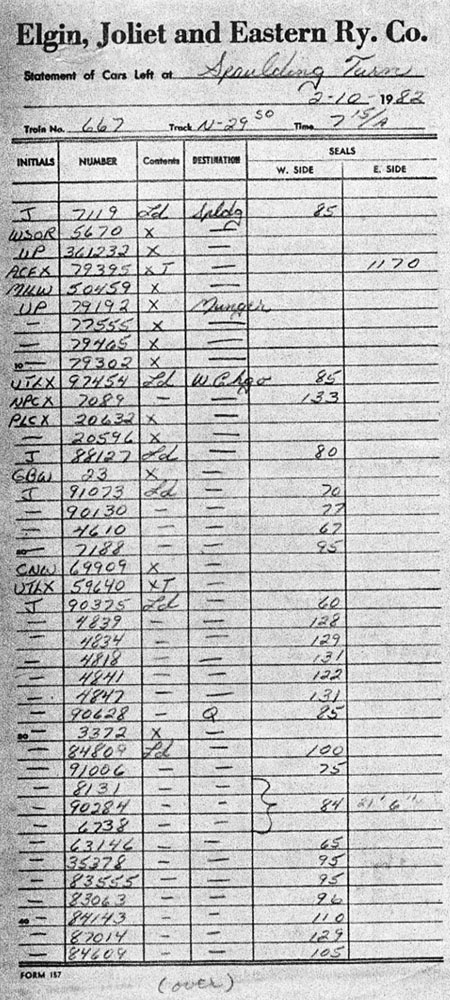 Elgin, Joliet and Eastern Ry. Co.
Statement of Cars Left at Spaulding Turn
2-10-1982
Train No. 667 Track N-29 50 Time 7 15/A
INITIALS NUMBER Contents DESTINATION SEALS
W. SIDE E. SIDE
J 7119 Ld Spldg 85
WSOR 5670 X —
UP 361232 X —
ACFX 79395 XT — 1170
MILW 50459 X —
UP 79192 X Munger
— 77555 X —
— 79465 X —
10 — 79302 X —
UTLX 97454 Ld W. Chgo 85
NPCX 7089 — — 133
PLCX 20632 X —
— 20596 X —
J 88127 Ld — 80
GBW 23 X —
J 91073 Ld — 70
— 90130 — — 77
— 4610 — — 67
20 — 7188 — — 95
CNW 69909 X —
UTLX 59640 XT —
J 90375 Ld — 60
— 4839 — — 128
— 4834 — — 129
— 4818 — — 131
— 4841 — — 122
— 4847 — — 131
— 90628 — Q 85
30 — 3372 X —
— 84809 Ld — 100
— 91006 — — 75
— 8131 — —
— 90284 — — 84 21' 6"
— 6738 — —
— 63146 — — 65
— 35378 — — 95
— 83555 — — 95
— 83063 — — 96
40 — 84143 — — 110
— 87014 — — 129
— 84609 — — 105
FORM 157
(over)